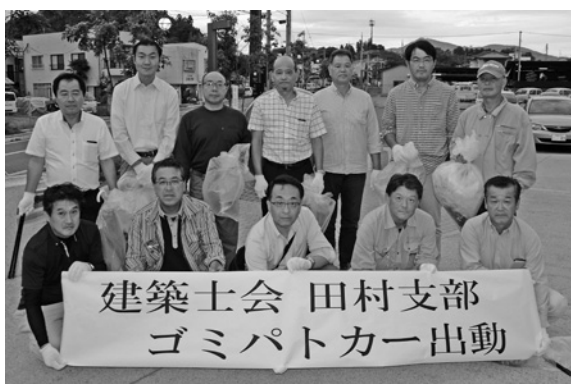 建築士会 田村支部
ゴミパトカー出動